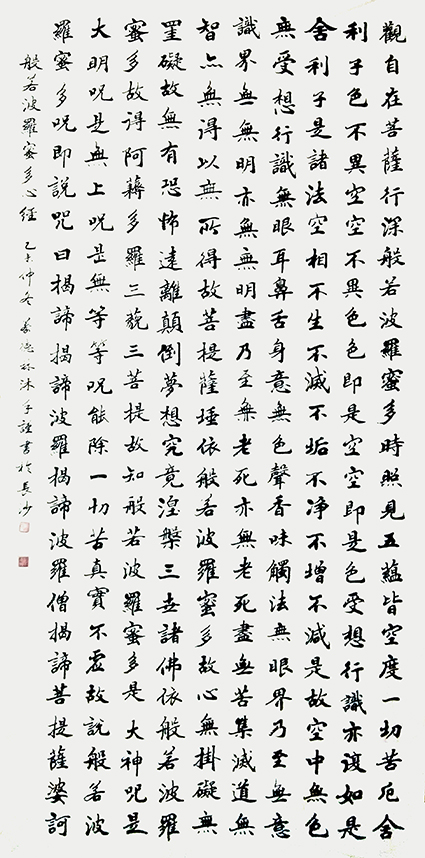 觀自在菩薩行深般若波羅蜜多時照見五蘊皆空度一切苦厄舍
利子色不異空空不異色色即是空空即是色受想行識亦復如是
舍利子是諸法空相不生不滅不垢不淨不增不減是故空中無色
無受想行識無眼耳鼻舌身意無色聲香味觸法無眼界乃至無意
識界無無明亦無無明盡乃至無老死亦無老死盡無苦集滅道無
智亦無得以無所得故菩提薩埵依般若波羅蜜多故心無掛礙無
罣礙故無有恐怖遠離顛倒夢想究竟涅槃三世諸佛依般若波羅
蜜多故得阿耨多羅三藐三菩提故知般若波羅蜜多是大神咒是
大明咒是無上咒是無等等咒能除一切苦真實不虛故說般若波
羅蜜多咒即說咒曰揭諦揭諦波羅揭諦波羅僧揭諦菩提薩婆訶
般若波羅蜜多心經 乙未仲冬 沐手謹書於長沙